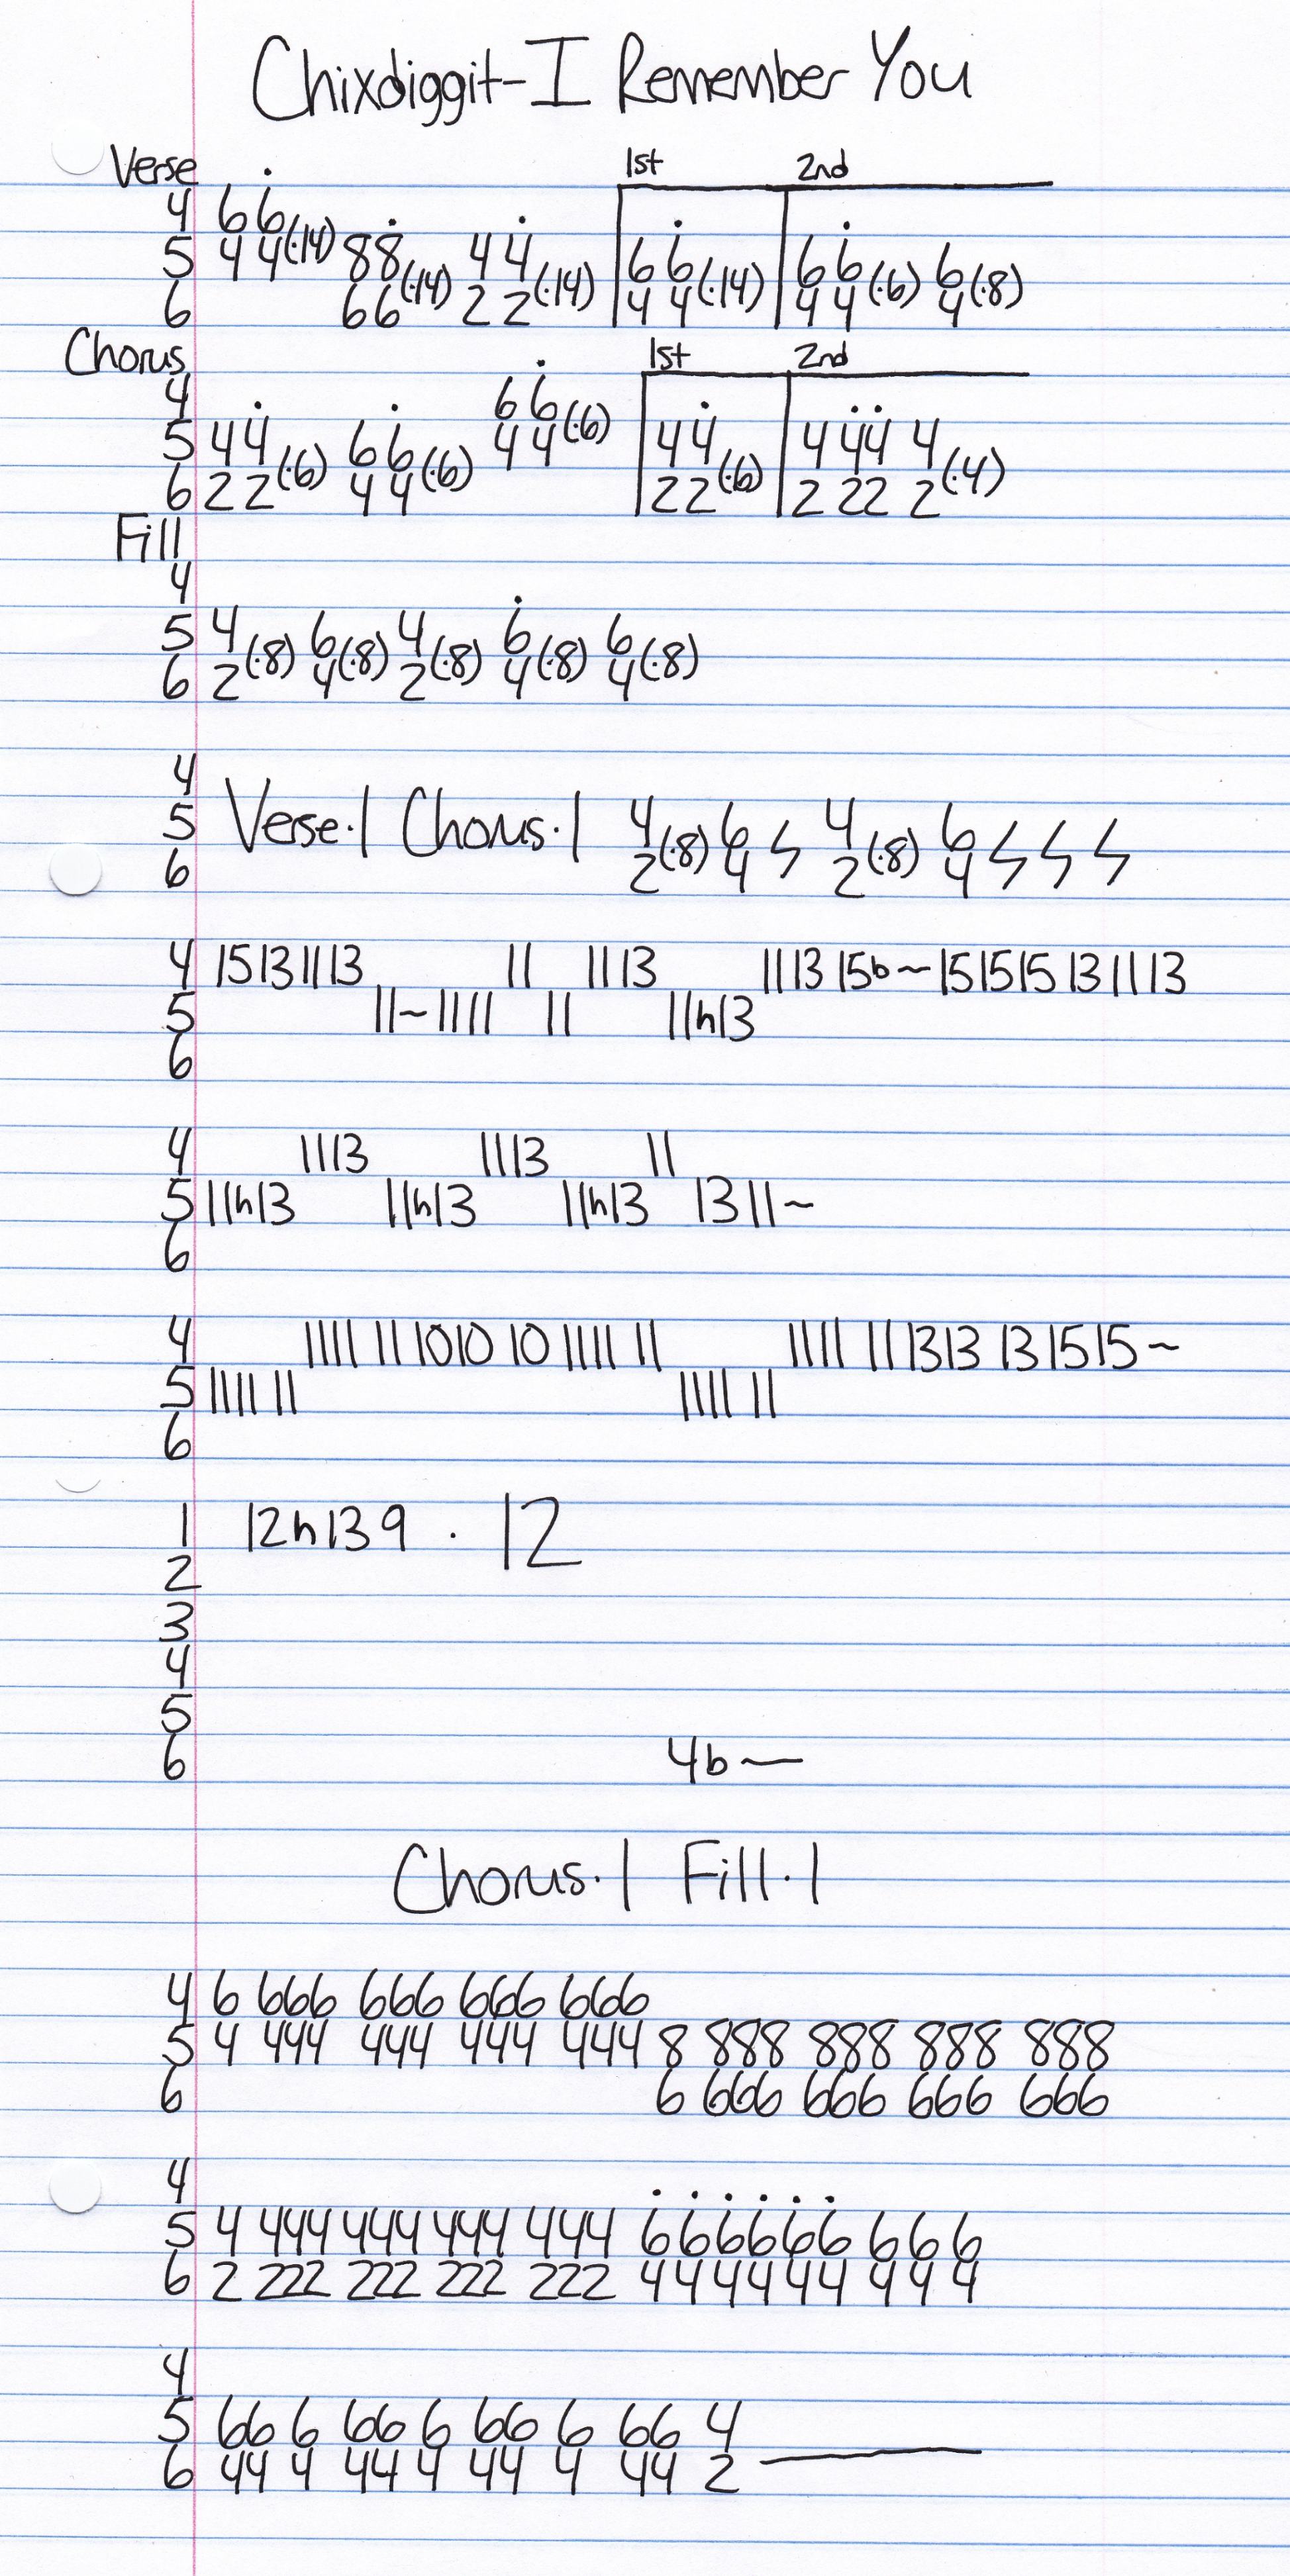 Chixdiggit-I Remember You
Verse 1st 2nd
4 6 6
5 4 4(·14) 8 8 4 4 6 6(·14) 6 6(·6) 6(·8)
6 6 6(·14) 2 2(·14) 4 4 4 4 4
Chorus 1st 2nd
4 6 6
5 4 4 6 6 4 4(·6) 4 4 4 4 4 4
6 2 2(·6) 4 4(·6) 2 2(·6) 2 2 2 2(·4)
Fill
4
5 4 6 4 6 6
6 2(·8) 4(·8) 2(·8) 4(·8) 4(·8)
4
5 Verse·| Chorus·| 4 6 4 6
6 2(·8) 4 2(·8) 4
4 15131113 11 1113 111315b~15151513 1113
5 11~1111 11 11h13
6
4 1113 1113 11
5 11h13 11h13 11h13 1311~
6
4 1111 11 1010 10 1111 11 1111 11 1313 13 1515~
5 1111 11 1111 11
6
1 12h13 9 · 12
2
3
4
5
6 4b—
Chorus·| Fill·|
4 6 666 666 666 666
5 4 444 444 444 444 8 888 888 888 888
6 6 666 666 666 666
4
5 4 444 444 444 444 666666 6 6 6
6 2 222 222 222 222 444444 4 4 4
4
5 66 6 66 6 66 6 66 4
6 44 4 44 4 44 4 44 2—